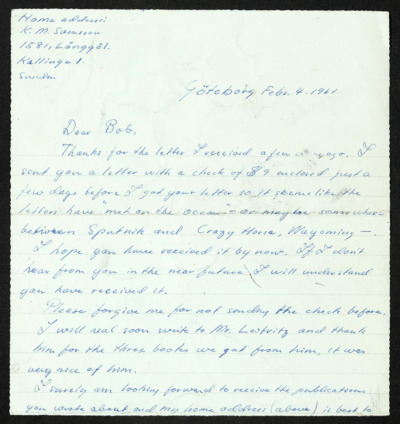 Home address:
K. M. Svensson
1581, Långgöl.
Kallinge 1.
Sweden
Göteborg Febr. 4. 1961
Dear Bob,
Thanks for the letter I received a few ago. I
sent you a letter with a check of $9 enclosed just a
few days before I got your letter so, it seems like the
letters have "met on the ocean" - or maybe somewhere
between Sputnik and Crazy Horse, Wayoming -.
I hope you have received it by now. If I don't
hear from you in the near future, I will understand
you have received it.
Please forgive me for not sending the check before.
I will real soon write to Mr. and thank
him for the three books we got from him, it was
very nice of him.
I surely am looking forward to receive the publications
you wrote about and my home address (above) is best to